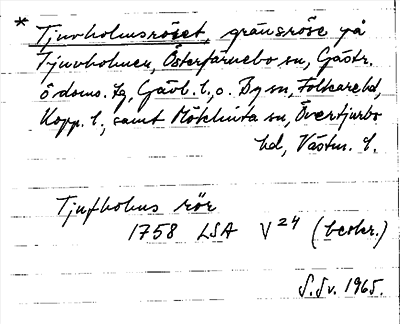 * Tjuvholmsröset, gränsröse på
Tjuvholmen, Österfärnebo sn, Gästr.
ö doms. lg, Gävl. l, o. By sn, Folkare hd,
Kopp. l., samt Möklinta sn, Övertjurbo
hd, Västm. l.
Tjufholms rör
1758 LSA V 24 (beskr.)
S. Sv. 1965.